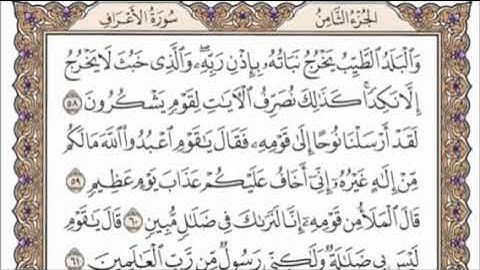 الجزء الثامن سورة الأعراف
وَالْبَلَدُ الطَّيِّبُ يَخْرُجُ نَبَاتُهُۥ بِإِذْنِ رَبِّهِۦ ۖ وَالَّذِى خَبُثَ لَا يَخْرُجُ
إِلَّا نَكِدًا ۚ كَذَٰلِكَ نُصَرِّفُ الْـَٔايَـٰتِ لِقَوْمٍ يَشْكُرُونَ ٥٨
لَقَدْ أَرْسَلْنَا نُوحًا إِلَىٰ قَوْمِهِۦ فَقَالَ يَـٰقَوْمِ اعْبُدُوا۟ اللَّهَ مَا لَكُم
مِّنْ إِلَـٰهٍ غَيْرُهُۥٓ إِنِّىٓ أَخَافُ عَلَيْكُمْ عَذَابَ يَوْمٍ عَظِيمٍ ٥٩
قَالَ الْمَلَأُ مِن قَوْمِهِۦٓ إِنَّا لَنَرَىٰكَ فِى ضَلَـٰلٍ مُّبِينٍ ٦٠ قَالَ يَـٰقَوْمِ
لَيْسَ بِى ضَلَـٰلَةٌ وَلَـٰكِنِّى رَسُولٌ مِّن رَّبِّ الْعَـٰلَمِينَ ٦١